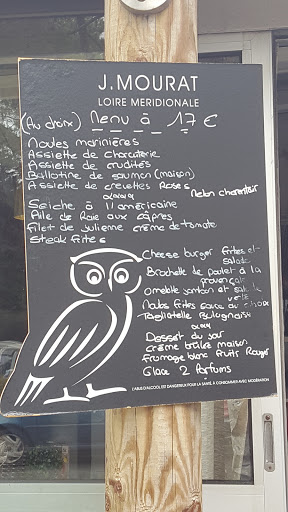 J. MOURAT
LOIRE MERIDIONALE
(Au choix) Menu à 17 €
Moules marinières
Assiette de charcuterie
Assiette de crudités
Ballotine de saumon (maison)
Assiette de crevettes Roses
Melon charentais
Seiche à l'américaine
Aile de Raie aux câpres
Filet de julienne crème de tomate
Steak frites
Cheese burger frites et salade
Brochette de poulet à la provençale
Omelette jambon et salade verte
Moules frites sauce au choix
Tagliatelle Bolognaise
Dessert du jour
Crème brûlée maison
Fromage blanc fruits Rouges
Glace 2 Parfums
L'ABUS D'ALCOOL EST DANGEREUX POUR LA SANTÉ, À CONSOMMER AVEC MODÉRATION